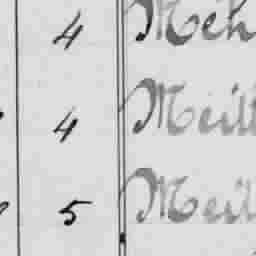 4 Meh
4 Meill
5 Meil